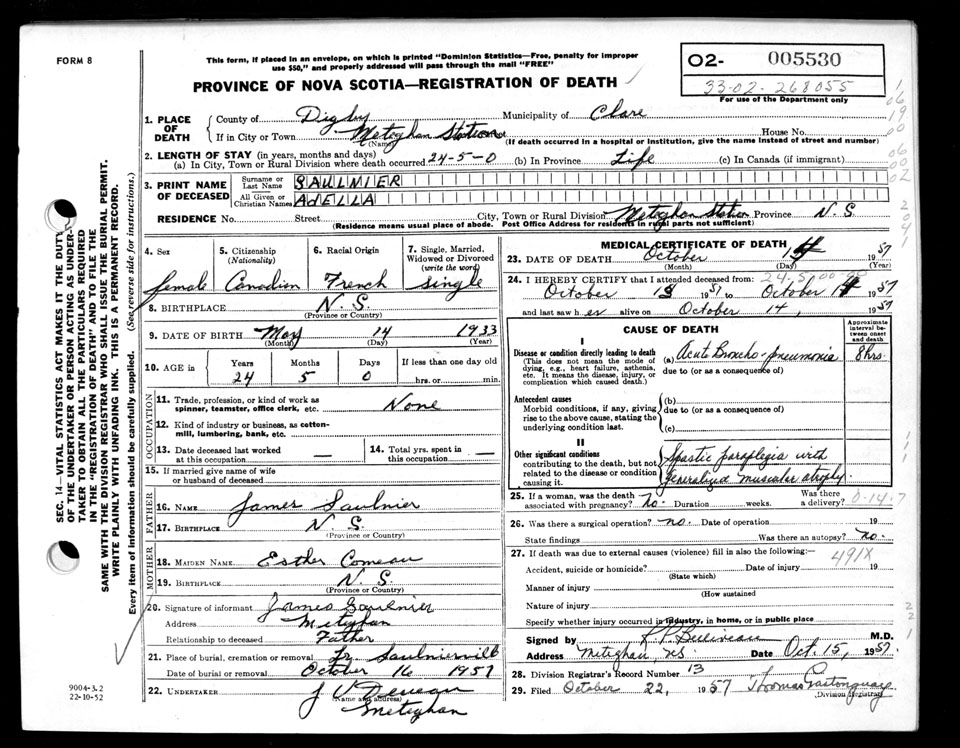 FORM 8
This form, if placed in an envelope, on which is printed "Dominion Statistics—Free, penalty for improper
use $50," and properly addressed will pass through the mail "FREE"
PROVINCE OF NOVA SCOTIA—REGISTRATION OF DEATH
O2- 005530
33-02-268055
For use of the Department only
1. PLACE OF DEATH
County of Digby Municipality of Clare
If in City or Town Meteghan Station House No.
(Name) (If death occurred in a hospital or institution, give the name instead of street and number)
2. LENGTH OF STAY (in years, months and days)
(a) In City, Town or Rural Division where death occurred 24-5-0 (b) In Province Life (c) In Canada (if immigrant)
3. PRINT NAME OF DECEASED
Surname or Last Name SAULNIER
All Given or Christian Names AdELLA
RESIDENCE No. Street City, Town or Rural Division Meteghan Station Province N.S.
(Residence means usual place of abode. Post Office Address for residents in rural parts not sufficient)
4. Sex female
5. Citizenship (Nationality) Canadian
6. Racial Origin French
7. Single, Married, Widowed or Divorced (write the word) Single
8. BIRTHPLACE N.S.
(Province or Country)
9. DATE OF BIRTH May 14 1933
(Month) (Day) (Year)
10. AGE in Years Months Days If less than one day old
24 5 0 hrs. or min.
OCCUPATION
11. Trade, profession, or kind of work as
spinner, teamster, office clerk, etc. None
12. Kind of industry or business, as cotton-
mill, lumbering, bank, etc.
13. Date deceased last worked at this occupation —
14. Total yrs. spent in this occupation —
15. If married give name of wife
or husband of deceased
FATHER
16. NAME James Saulnier
17. BIRTHPLACE N.S.
(Province or Country)
MOTHER
18. MAIDEN NAME Esther Comeau
19. BIRTHPLACE N.S.
(Province or Country)
20. Signature of informant James Saulnier
Address Meteghan
Relationship to deceased Father
21. Place of burial, cremation or removal Lr. Saulnierville
Date of burial or removal October 16 1957
22. UNDERTAKER J V Deveau
(Name and address)
Meteghan
MEDICAL CERTIFICATE OF DEATH
23. DATE OF DEATH October 14 1957
(Month) (Day) (Year)
24. I HEREBY CERTIFY that I attended deceased from:
October 13 1957 to October 14 1957
and last saw h er alive on October 14, 1957
CAUSE OF DEATH
Approximate interval between onset and death
I
Disease or condition directly leading to death
(This does not mean the mode of
dying, e.g., heart failure, asthenia,
etc. It means the disease, injury, or
complication which caused death.)
(a) Acute Broncho-pneumonia 8 hrs.
due to (or as a consequence of)
Antecedent causes
Morbid conditions, if any, giving
rise to the above cause, stating the
underlying condition last.
(b)
due to (or as a consequence of)
(c)
II
Other significant conditions
contributing to the death, but not
related to the disease or condition
causing it.
Spastic paraplegia with
generalized muscular atrophy.
25. If a woman, was the death associated with pregnancy? no. Duration weeks. Was there a delivery?
0-14-7
26. Was there a surgical operation? no. Date of operation 19
State findings Was there an autopsy? no.
27. If death was due to external causes (violence) fill in also the following:—
491X
Accident, suicide or homicide? Date of injury 19
(State which)
Manner of injury
(How sustained
Nature of injury
Specify whether injury occurred in industry, in home, or in public place
Signed by Belliveau M.D.
Address Meteghan, NS Date Oct. 15, 1957.
28. Division Registrar's Record Number 13
29. Filed October 22, 1957 Thomas Gastonguay
(Division Registrar)
SEC. 14—VITAL STATISTICS ACT MAKES IT THE DUTY
OF THE UNDERTAKER OR PERSON ACTING AS UNDER-
TAKER TO OBTAIN ALL THE PARTICULARS REQUIRED
IN THE "REGISTRATION OF DEATH" AND TO FILE THE
SAME WITH THE DIVISION REGISTRAR WHO SHALL ISSUE THE BURIAL PERMIT.
WRITE PLAINLY WITH UNFADING INK. THIS IS A PERMANENT RECORD.
Every item of information should be carefully supplied. (See reverse side for instructions.)
9004-3.2
22-10-52